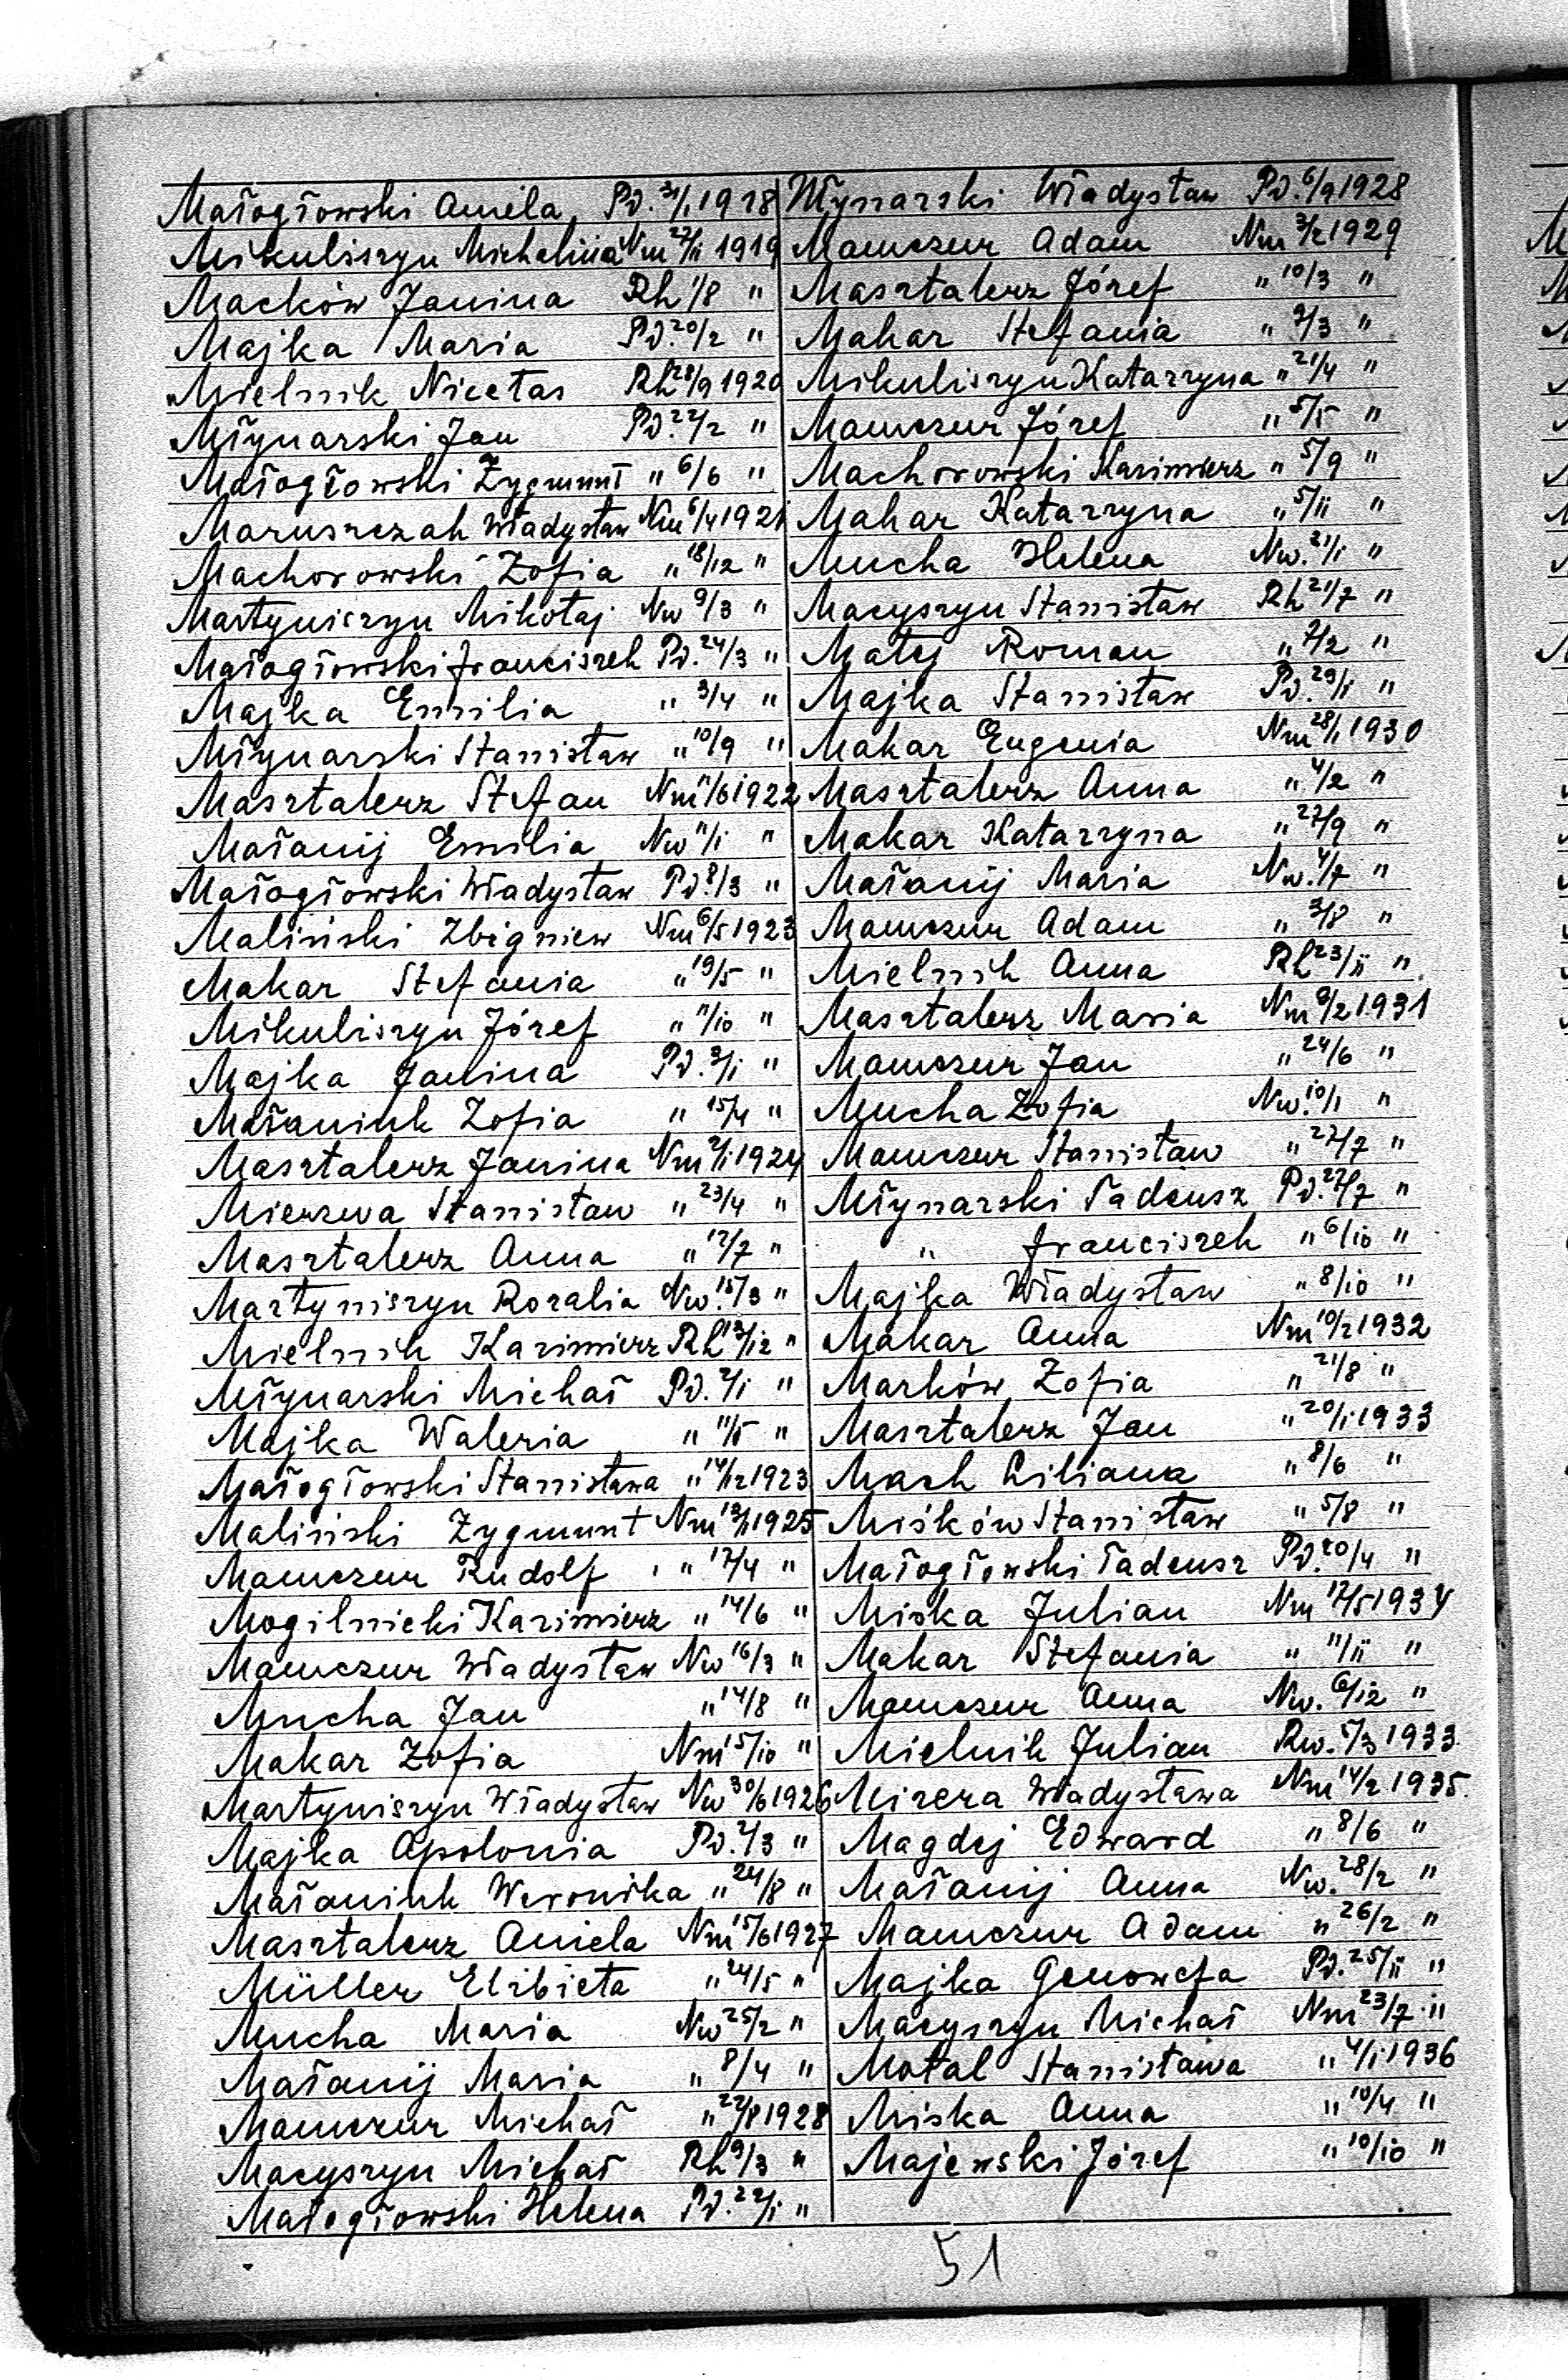 Małogłowski Aniela Pd. 3/1 1918
Mikuliszyn Michalina Nm 22/11 1919
Macków Janina Rh 1/8 "
Majka Maria Pd. 20/2 "
Mielnik Nicetas Rh 28/9 1920
Młynarski Jan Pd. 22/2 "
Małogłowski Zygmunt " 6/6 "
Maruszczak Władysław Nm 6/4 1921
Machorowski Zofia " 18/12 "
Martyniszyn Mikołaj Nw 9/3 "
Małogłowski Franciszek Pd. 24/3 "
Majka Emilia " 3/4 "
Młynarski Stanisław " 10/9 "
Masztalerz Stefan Nm 1/6 1922
Małanij Emilia Nw 11/i "
Małogłowski Władysław Pd. 8/3 "
Maliński Zbigniew Nm 6/5 1923
Makar Stefania " 19/5 "
Mikuliszyn Józef " 11/10 "
Majka Janina Pd. 3/i "
Małaniuk Zofia " 15/4 "
Masztalerz Janina Nm 2/i 1924
Mierzwa Stanisław " 23/4 "
Masztalerz Anna " 17/7 "
Martyniszyn Rozalia Nw. 15/3 "
Mielnik Kazimierz Rh 13/12 "
Młynarski Michał Pd. 2/i "
Majka Waleria " 11/5 "
Małogłowski Stanisława " 14/12 1923
Maliński Zygmunt Nm 13/1 1925
Mamczur Rudolf " 17/4 "
Mogilnicki Kazimierz " 14/6 "
Mamczur Władysław Nw 16/3 "
Mucha Jan " 14/8 "
Makar Zofia Nm 15/10 "
Martyniszyn Władysław Nw 30/6 1926
Majka Apolonia Pd. 2/3 "
Małaniuk Weronika " 24/8 "
Masztalerz Aniela Nm 15/6 1927
Müller Elżbieta " 24/5 "
Mucha Maria Nw 25/2 "
Małanij Maria " 8/4 "
Mamczur Michał " 22/8 1928
Macyszyn Michał Rh 9/3 "
Małogłowski Helena Pd. 22/i "
Młynarski Władysław Pd. 6/9 1928
Mamczur Adam Nm 3/2 1929
Masztalerz Józef " 10/3 "
Makar Stefania " 9/3 "
Mikuliszyn Katarzyna " 21/4 "
Mamczur Józef " 5/5 "
Machorowski Kazimierz " 5/9 "
Makar Katarzyna " 5/ii "
Mucha Helena Nw. 21/i "
Macyszyn Stanisław Rh 21/7 "
Matej Roman " 7/2 "
Majka Stanisław Pd. 29/i "
Makar Eugenia Nm 28/1 1930
Masztalerz Anna " 4/2 "
Makar Katarzyna " 27/9 "
Małanij Maria Nw. 4/7 "
Mamczur Adam " 3/8 "
Mielnik Anna Rh 23/ii "
Masztalerz Maria Nm 8/2 1931
Mamczur Jan " 24/6 "
Mucha Zofia Nw. 10/1 "
Mamczur Stanisław " 27/7 "
Młynarski Tadeusz Pd. 27/7 "
" Franciszek " 6/10 "
Majka Władysław " 8/10 "
Makar Anna Nm 10/2 1932
Marków Zofia " 21/8 "
Masztalerz Jan " 20/1 1933
Mach Liliana " 8/6 "
Miśków Stanisław " 5/8 "
Małogłowski Tadeusz Pd. 20/4 "
Miska Julian Nm 17/5 1934
Makar Stefania " 11/ii "
Mamczur Anna Nw. 6/12 "
Mielnik Julian Rw. 5/3 1933
Mirera Władysława Nm 14/2 1935.
Magdej Edward " 8/6 "
Małanij Anna Nw. 28/2 "
Mamczur Adam " 26/2 "
Majka Genowefa Pd. 25/ii "
Macyszyn Michał Nm 23/7 "
Motal Stanisława " 4/i 1936
Miska Anna " 10/4 "
Majewski Józef " 10/10 "
51